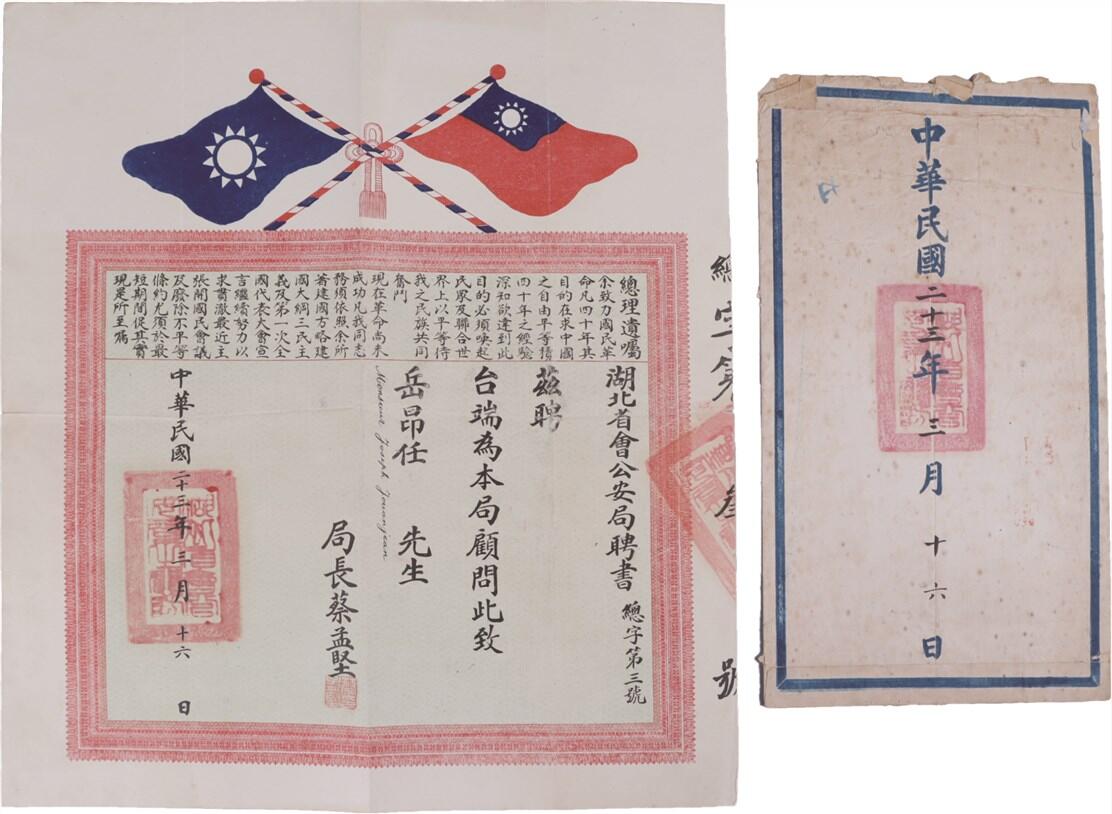 總字第叁號
總理遺囑
余致力國民革
命凡四十年其
目的在求中國
之自由平等積
四十年之經驗
深知欲達到此
目的必須喚起
民眾及聯合世
界上以平等待
我之民族共同
奮鬥
現在革命尚未
成功凡我同志
務須依照余所
著建國方略建
國大綱三民主
義及第一次全
國代表大會宣
言繼續努力以
求貫澈最近主
張開國民會議
及廢除不平等
條約尤須於最
短期間促其實
現是所至囑
湖北省會公安局聘書 總字第三號
茲聘
台端為本局顧問此致
岳昂任 先生
Monsieur Joseph Jouanjean
局長蔡孟堅
中華民國二十三年三月十六日
中華民國二十三年三月十六日